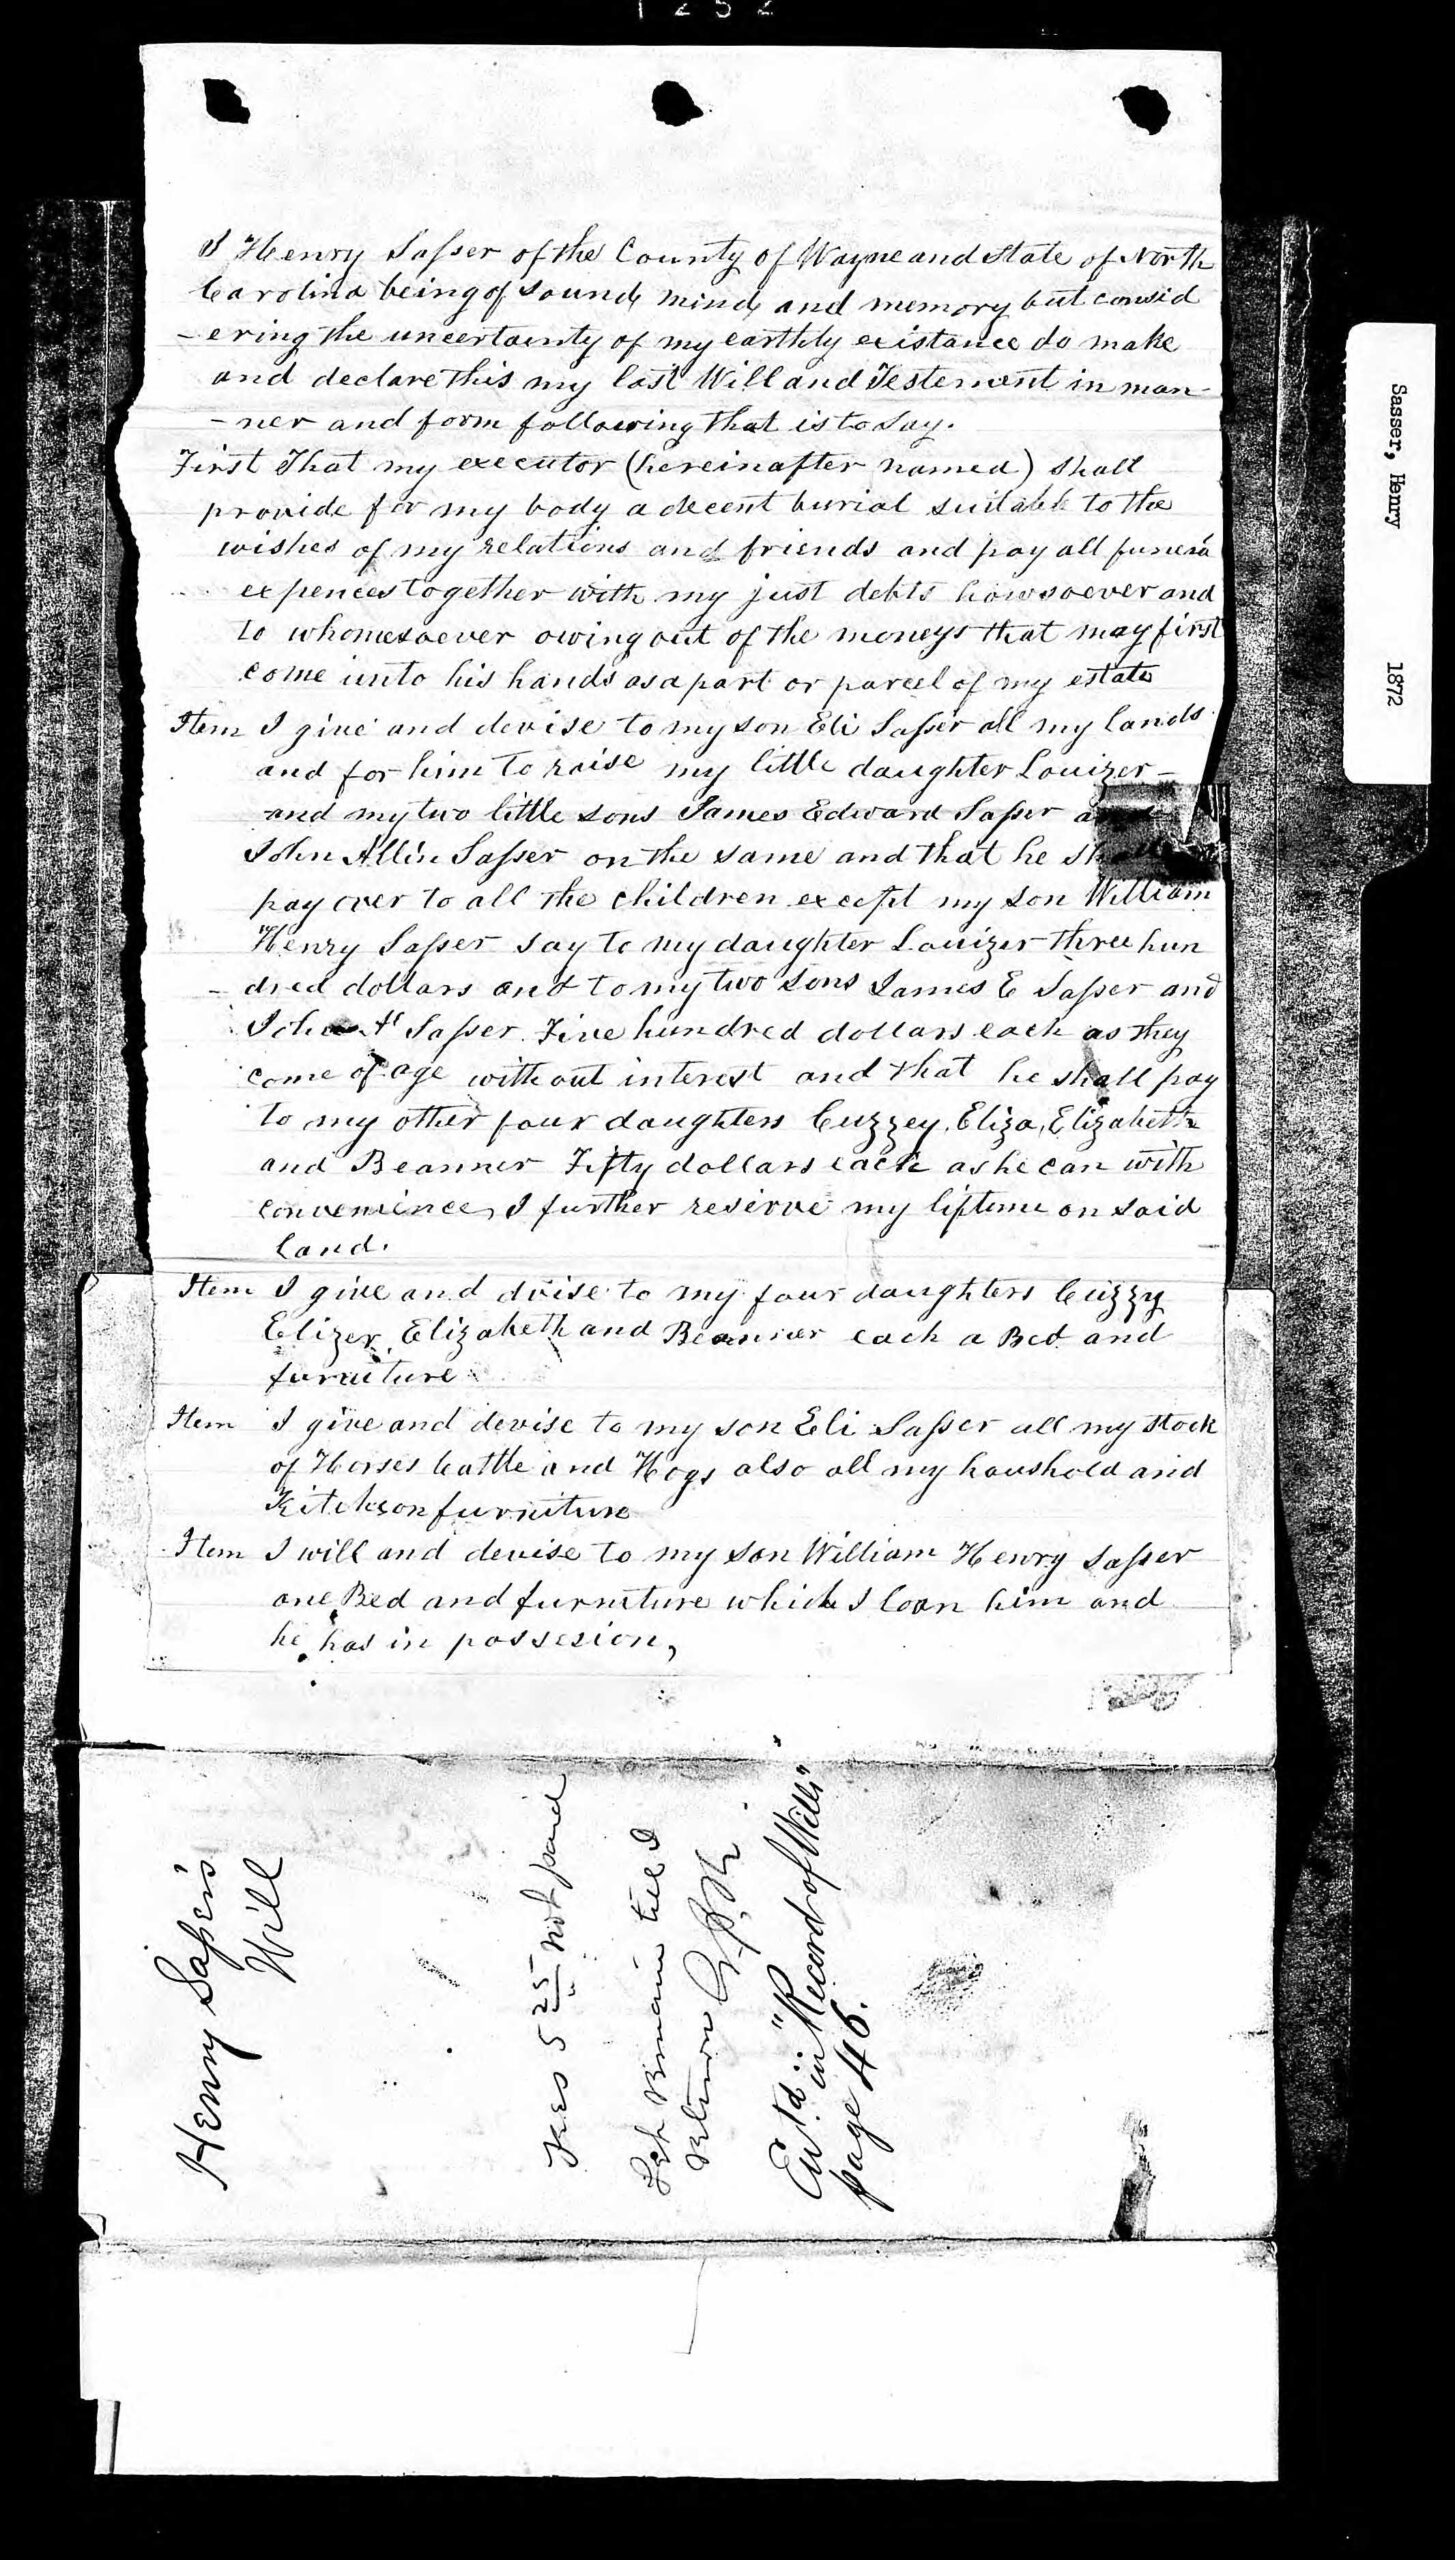 1252
I Henry Saſser of the County of Wayne and State of North
Carolina being of sound mind and memory but consid
-ering the uncertainty of my earthly existance do make
and declare this my last Will and Testement in man-
-ner and form following that is to say.
First That my executor (hereinafter named) shall
provide for my body a decent burial suitable to the
wishes of my relations and friends and pay all funera
expences together with my just debts howsoever and
to whomesoever owing out of the moneys that may first
come into his hands as a part or parcel of my estate
Item I give and devise to my son Eli Saſser all my lands
and for him to raise my little daughter Louizer-
and my two little sons James Edward Saſser and
John Allin Saſser on the same and that he shall
pay over to all the children except my son William
Henry Saſser say to my daughter Louizer three hun
-dred dollars and to my two sons James E Saſser and
John A Saſser Five hundred dollars each as they
come of age without interest and that he shall pay
to my other four daughters Cuzzey, Eliza, Elizabeth
and Beanner Fifty dollars each as he can with
convenience, I further reserve my liftime on said
land.
Item I give and dvise to my four daughters Cuzzy
Elizer, Elizabeth and Beanner each a Bed and
furniture
Item I give and devise to my son Eli Saſser all my stock
of Horses Cattle and Hogs also all my houshold and
Kitchson furniture
Item I will and devise to my son William Henry Saſser
one Bed and furniture which I loan him and
he has in possesion,
Henry Saſser's
Will
Fees 5 25 not paid
Let Remain till I
Return
Ent'd. in "Record of Wills"
page 46.
Sasser, Henry 1872